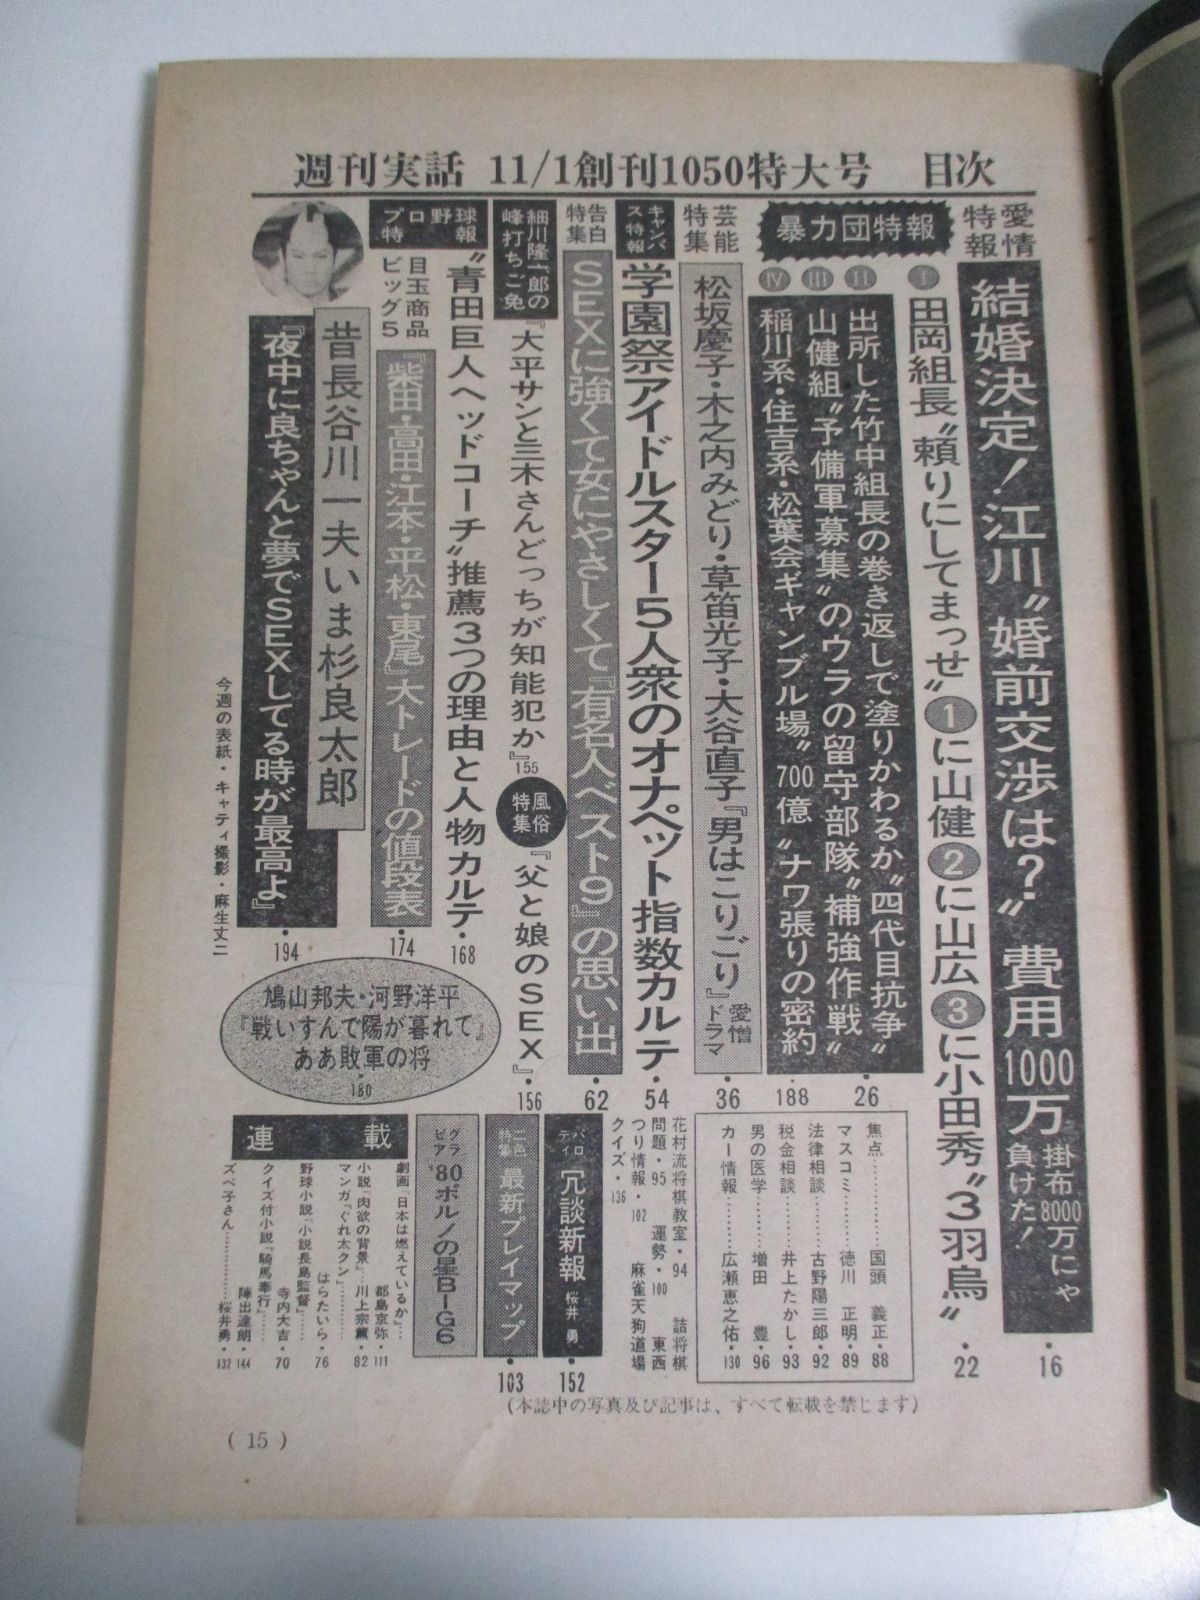 週刊実話 11/1創刊1050特大号 目次
愛情特報
結婚決定!江川〝婚前交渉は?〟費用1000万
掛布8000万にゃ負けた!・16
暴力団特報
Ⅰ 田岡組長〝頼りにしてまっせ〟①に山健②に山広③に小田秀〝3羽烏〟・22
Ⅱ 出所した竹中組長の巻き返しで塗りかわるか〝四代目抗争〟・26
Ⅲ 山健組〝予備軍募集〟のウラの留守部隊〝補強作戦〟
Ⅳ 稲川系・住吉系・松葉会ギャンブル場〝700億〟ナワ張りの密約・188
芸能特集
松坂慶子・木之内みどり・草笛光子・大谷直子『男はこりごり』愛憎ドラマ・36
キャンパス特報
学園祭アイドルスター5人衆のオナペット指数カルテ・54
告白特集
SEXに強くて女にやさしくて『有名人ベスト9』の思い出・62
細川隆一郎の峰打ちご免
『大平サンと三木さんどっちが知能犯か』155
風俗特集
『父と娘のSEX』・156
プロ野球特報
〝青田巨人ヘッドコーチ〟推薦3つの理由と人物カルテ・168
目玉商品ビッグ5
『柴田・高田・江本・平松・東尾』大トレードの値段表・174
昔長谷川一夫いま杉良太郎
『夜中に良ちゃんと夢でSEXしてる時が最高よ』・194
今週の表紙・キャティ 撮影・麻生丈二
鳩山邦夫・河野洋平
『戦いすんで陽が暮れて』
ああ敗軍の将
・180
焦点………国頭 義正・88
マスコミ………徳川 正明・89
法律相談………古野陽三郎・92
税金相談………井上たかし・93
男の医学………増田 豊・96
カー情報………広瀬恵之佑・130
花村流将棋教室・94 詰将棋
問題・95 運勢・100 東西
つり情報・102 麻雀天狗道場
クイズ・136
パロディ 冗談新報 桜井 勇・152
二色特集 最新プレイマップ・103
グラビア 〝80ポルノの星BIG6
連載
劇画「日本は燃えているか」…都島京弥・111
小説「肉欲の背景」…川上宗薫・82
マンガ「ぐれ太クン」………はらたいら・76
野球小説「小説長島監督」…寺内大吉・70
クイズ付小説「騎馬奉行」…陣出達朗・144
ズベ子さん………桜井勇・132
(本誌中の写真及び記事は、すべて転載を禁じます)
( 15 )